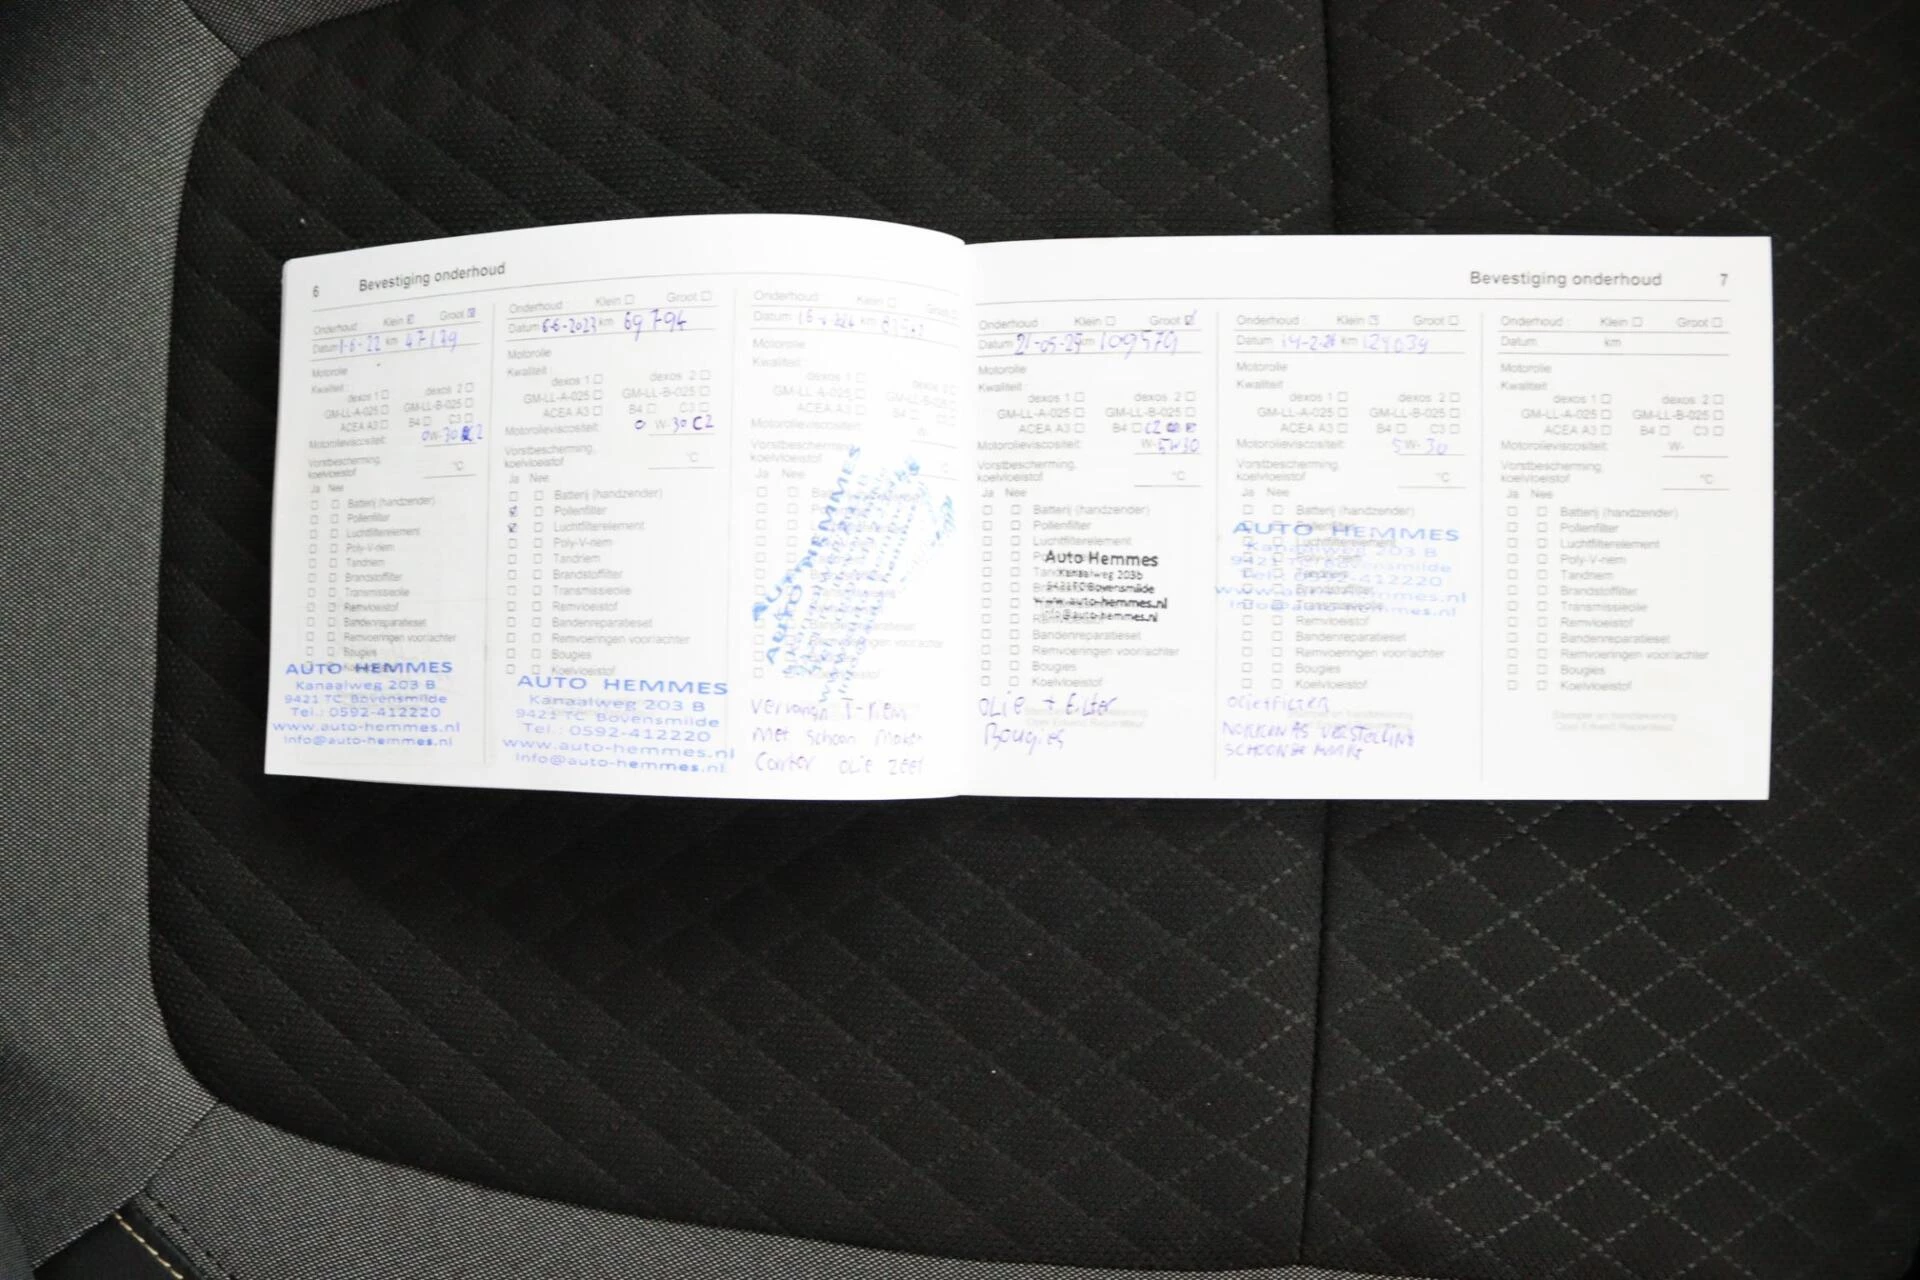 6 Bevestiging onderhoud
Onderhoud : Klein Groot
Datum 1-6-22 km 47139
Motorolie
Kwaliteit :
dexos 1 dexos 2
GM-LL-A-025 GM-LL-B-025
ACEA A3 B4 C3
Motorolieviscositeit: 0W-30 C2
Vorstbescherming,
koelvloeistof °C
Ja Nee
Batterij (handzender)
Pollenfilter
Luchtfilterelement
Poly-V-riem
Tandriem
Brandstoffilter
Transmissieolie
Remvloeistof
Bandenreparatieset
Remvoeringen voor/achter
Bougies
AUTO HEMMES
Kanaalweg 203 B
9421 TC Bovensmilde
Tel.: 0592-412220
www.auto-hemmes.nl
info@auto-hemmes.nl
Onderhoud : Klein Groot
Datum 6-6-2023 km 69794
Motorolie
Kwaliteit :
dexos 1 dexos 2
GM-LL-A-025 GM-LL-B-025
ACEA A3 B4 C3
Motorolieviscositeit: 0 W-30 C2
Vorstbescherming,
koelvloeistof °C
Ja Nee
Batterij (handzender)
Pollenfilter
Luchtfilterelement
Poly-V-riem
Tandriem
Brandstoffilter
Transmissieolie
Remvloeistof
Bandenreparatieset
Remvoeringen voor/achter
Bougies
Koelvloeistof
AUTO HEMMES
Kanaalweg 203 B
9421 TC Bovensmilde
Tel.: 0592-412220
www.auto-hemmes.nl
info@auto-hemmes.nl
Onderhoud : Klein Groot
Datum km
Motorolie
Kwaliteit :
dexos 1 dexos 2
GM-LL-A-025 GM-LL-B-025
ACEA A3 B4 C3
Motorolieviscositeit: W-
Vorstbescherming,
koelvloeistof °C
Ja Nee
AUTO HEMMES
Vervangn T-riem
met schoon maken
Carter olie zeef
Bevestiging onderhoud 7
Onderhoud : Klein Groot
Datum 21-05-25 km 109579
Motorolie
Kwaliteit :
dexos 1 dexos 2
GM-LL-A-025 GM-LL-B-025
ACEA A3 B4 C2
Motorolieviscositeit: W- 5W30
Vorstbescherming,
koelvloeistof °C
Ja Nee
Batterij (handzender)
Pollenfilter
Luchtfilterelement
Auto Hemmes
Kanaalweg 203b
9421TC Bovensmilde
www.auto-hemmes.nl
info@auto-hemmes.nl
Bandenreparatieset
Remvoeringen voor/achter
Bougies
Koelvloeistof
OLie + Filter
Bougies
Onderhoud : Klein Groot
Datum 14-2-26 km 129039
Motorolie
Kwaliteit :
dexos 1 dexos 2
GM-LL-A-025 GM-LL-B-025
ACEA A3 B4 C3
Motorolieviscositeit: 5W-30
Vorstbescherming,
koelvloeistof °C
Ja Nee
Batterij (handzender)
AUTO HEMMES
Kanaalweg 203 B
9421 TC Bovensmilde
Tel.: 0592-412220
www.auto-hemmes.nl
info@auto-hemmes.nl
Remvloeistof
Bandenreparatieset
Remvoeringen voor/achter
Bougies
Koelvloeistof
OLIE+FILTER
NOKKENAS VERSTELLING
Onderhoud : Klein Groot
Datum km
Motorolie
Kwaliteit :
dexos 1 dexos 2
GM-LL-A-025 GM-LL-B-025
ACEA A3 B4 C3
Motorolieviscositeit: W-
Vorstbescherming,
koelvloeistof °C
Ja Nee
Batterij (handzender)
Pollenfilter
Luchtfilterelement
Poly-V-riem
Tandriem
Brandstoffilter
Transmissieolie
Remvloeistof
Bandenreparatieset
Remvoeringen voor/achter
Bougies
Koelvloeistof
Stempel en handtekening
Opel Erkend Reparateur